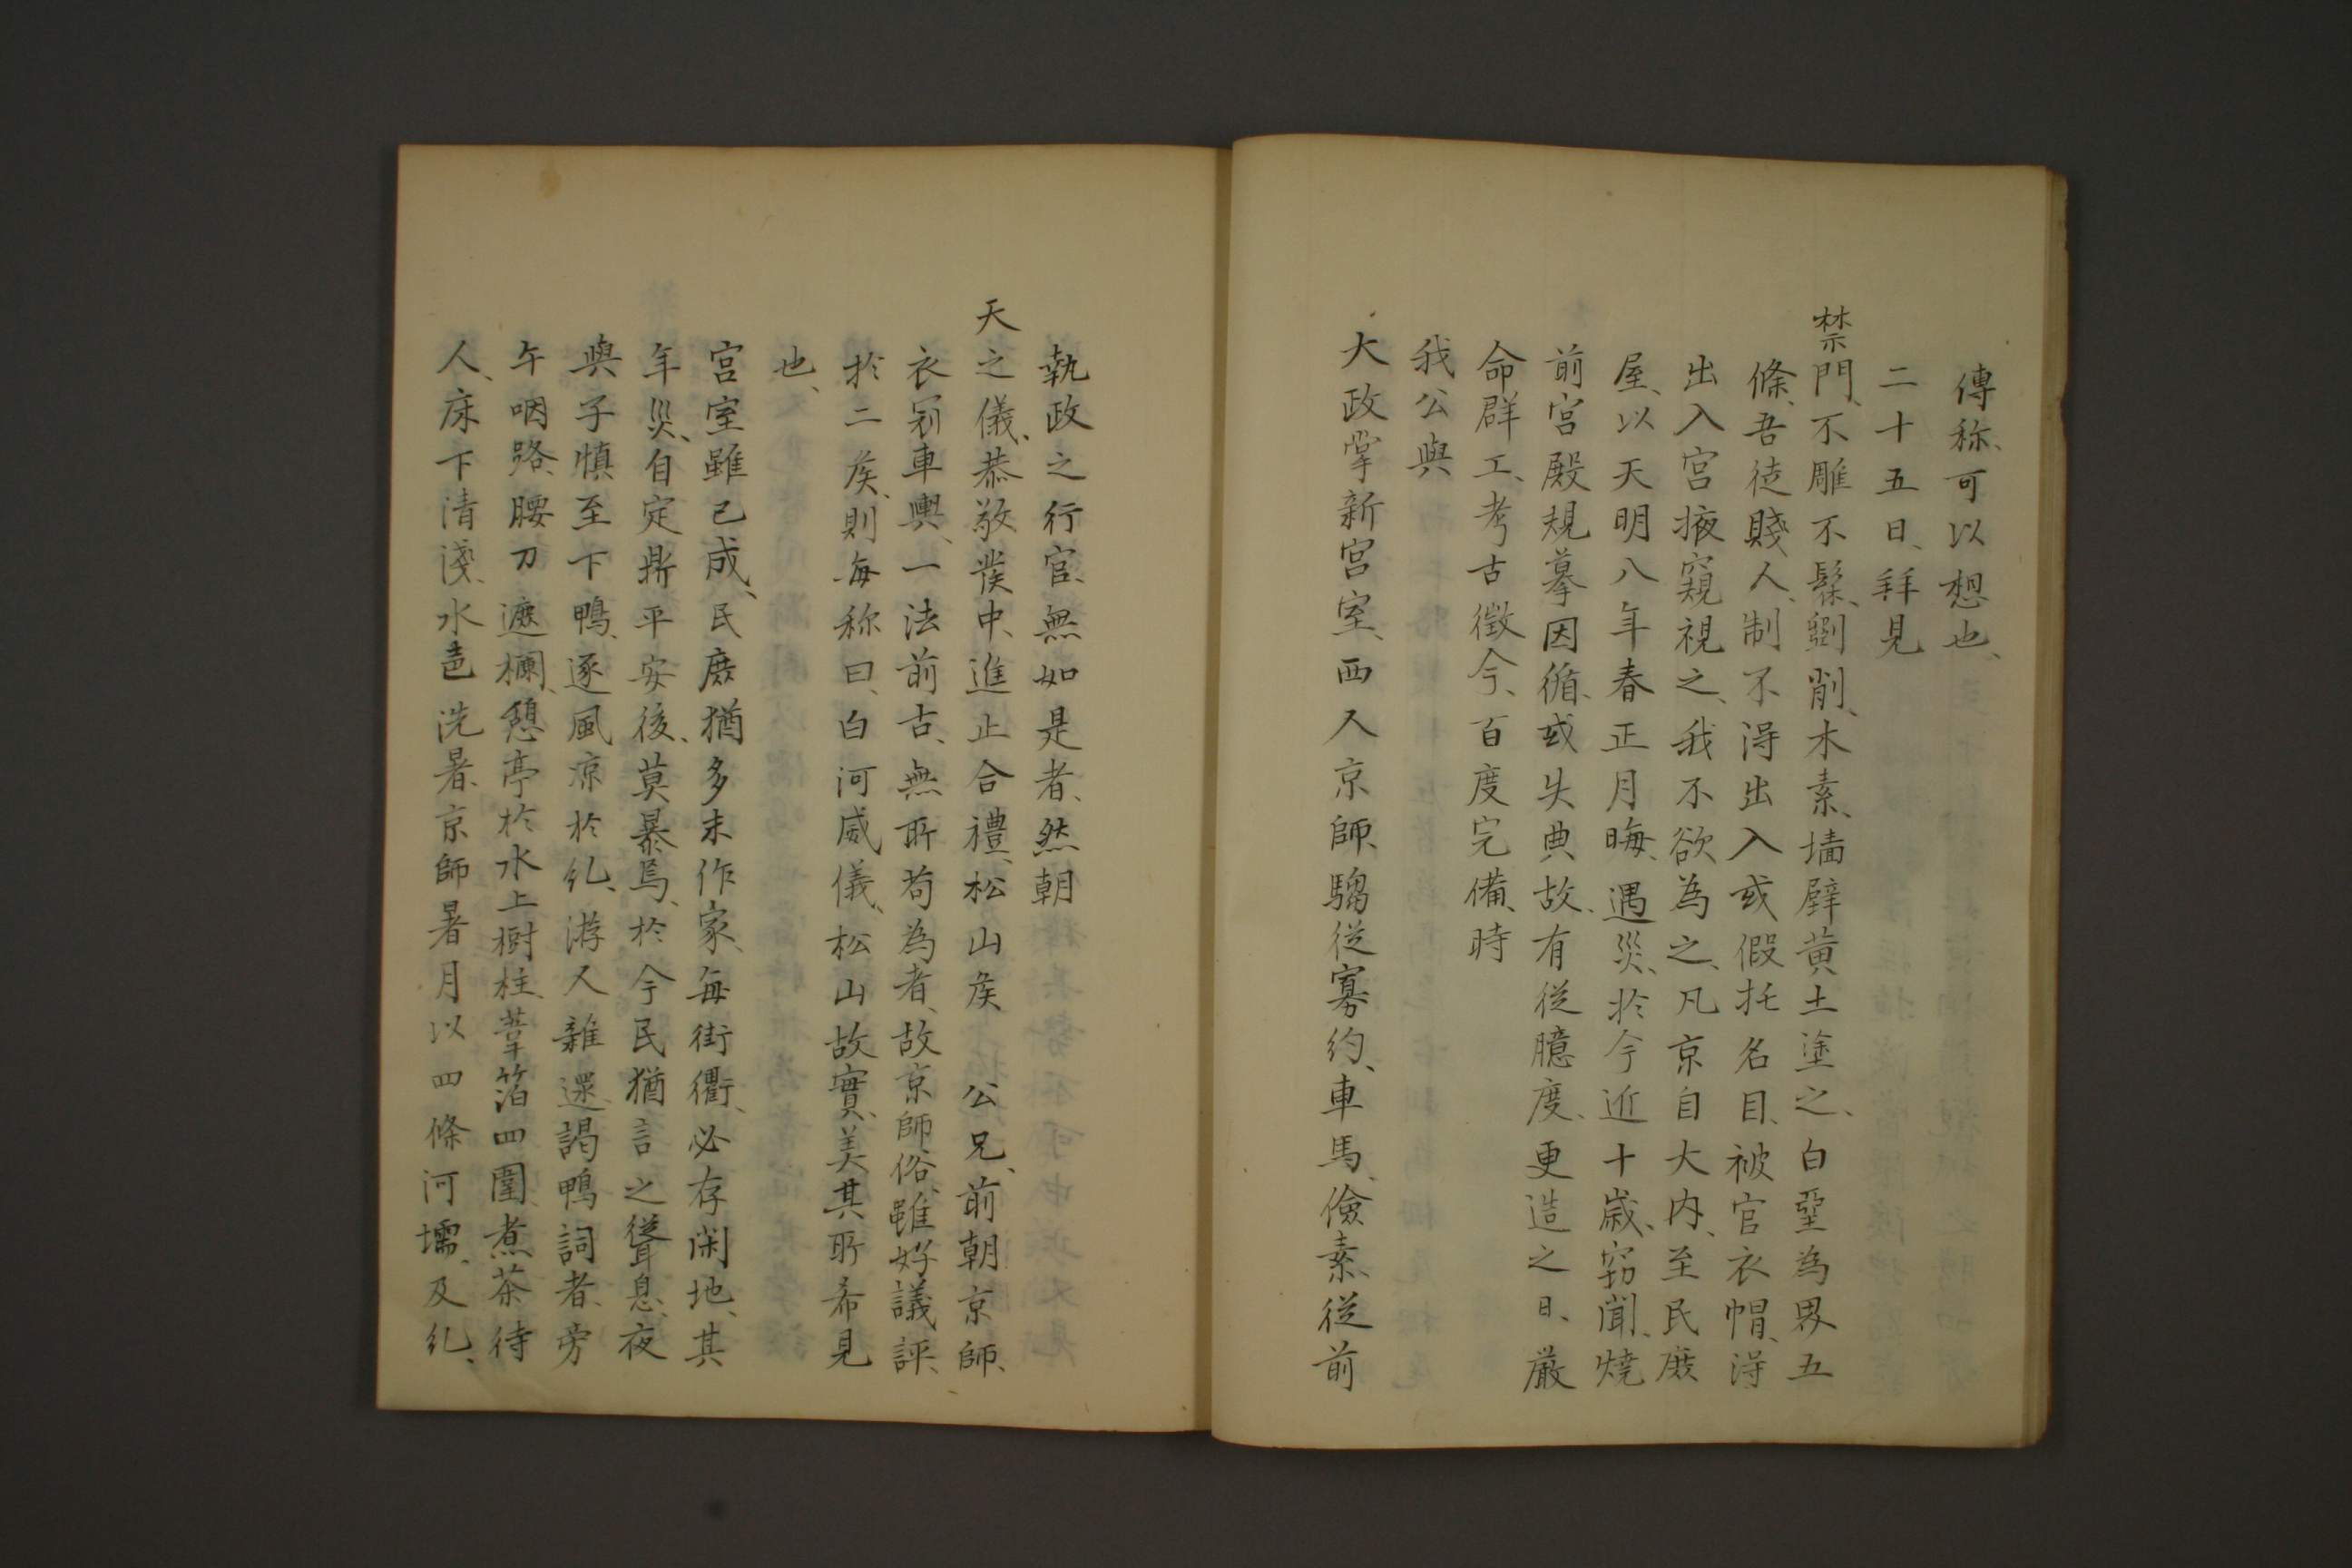 傳称、可以想也、
二十五日、拜見
禁門、不雕不髹、劉削、木素、墻壁黄土塗之、白堊為界五
條、吾徒賤人、制不得出入或假托名目、被官衣帽、得
出入宮掖窺視之、我不欲為之、凡京自大内、至民庶
屋、以天明八年春正月晦、遇災、於今近十歲、窃聞、燒
前宮殿規摹因循、或失典故、有従臆度、更造之日、嚴
命群工、考古徵今、百度完備、時
我公與
大政掌新宮室、西入京師、騶從寡約、車馬、儉素、從前
執政之行官、無如是者、然朝
天之儀、恭敬蹼中、進止合禮、松山矦 公兄、前朝京師、
衣冠車輿、一法前古、無所苟為者、故京師俗、雖好議評、
於二矦、則每称曰、白河威儀、松山故實、美其所希見
也、
宮室雖已成、民庶猶多未作家、每街衢、必存閑地、其
年災、自定鼎平安後、莫暴焉、於今民猶言之聳息、夜
與子慎至下鴨、逐風凉於糺、游人雜遝、謁鴨詞者、旁
午咽路、腰刀遮欄、憩亭於水上樹柱、葦箔四圍、煮茶待
人、床下清淺、水色洗暑、京師暑月以四條河壖、及糺、